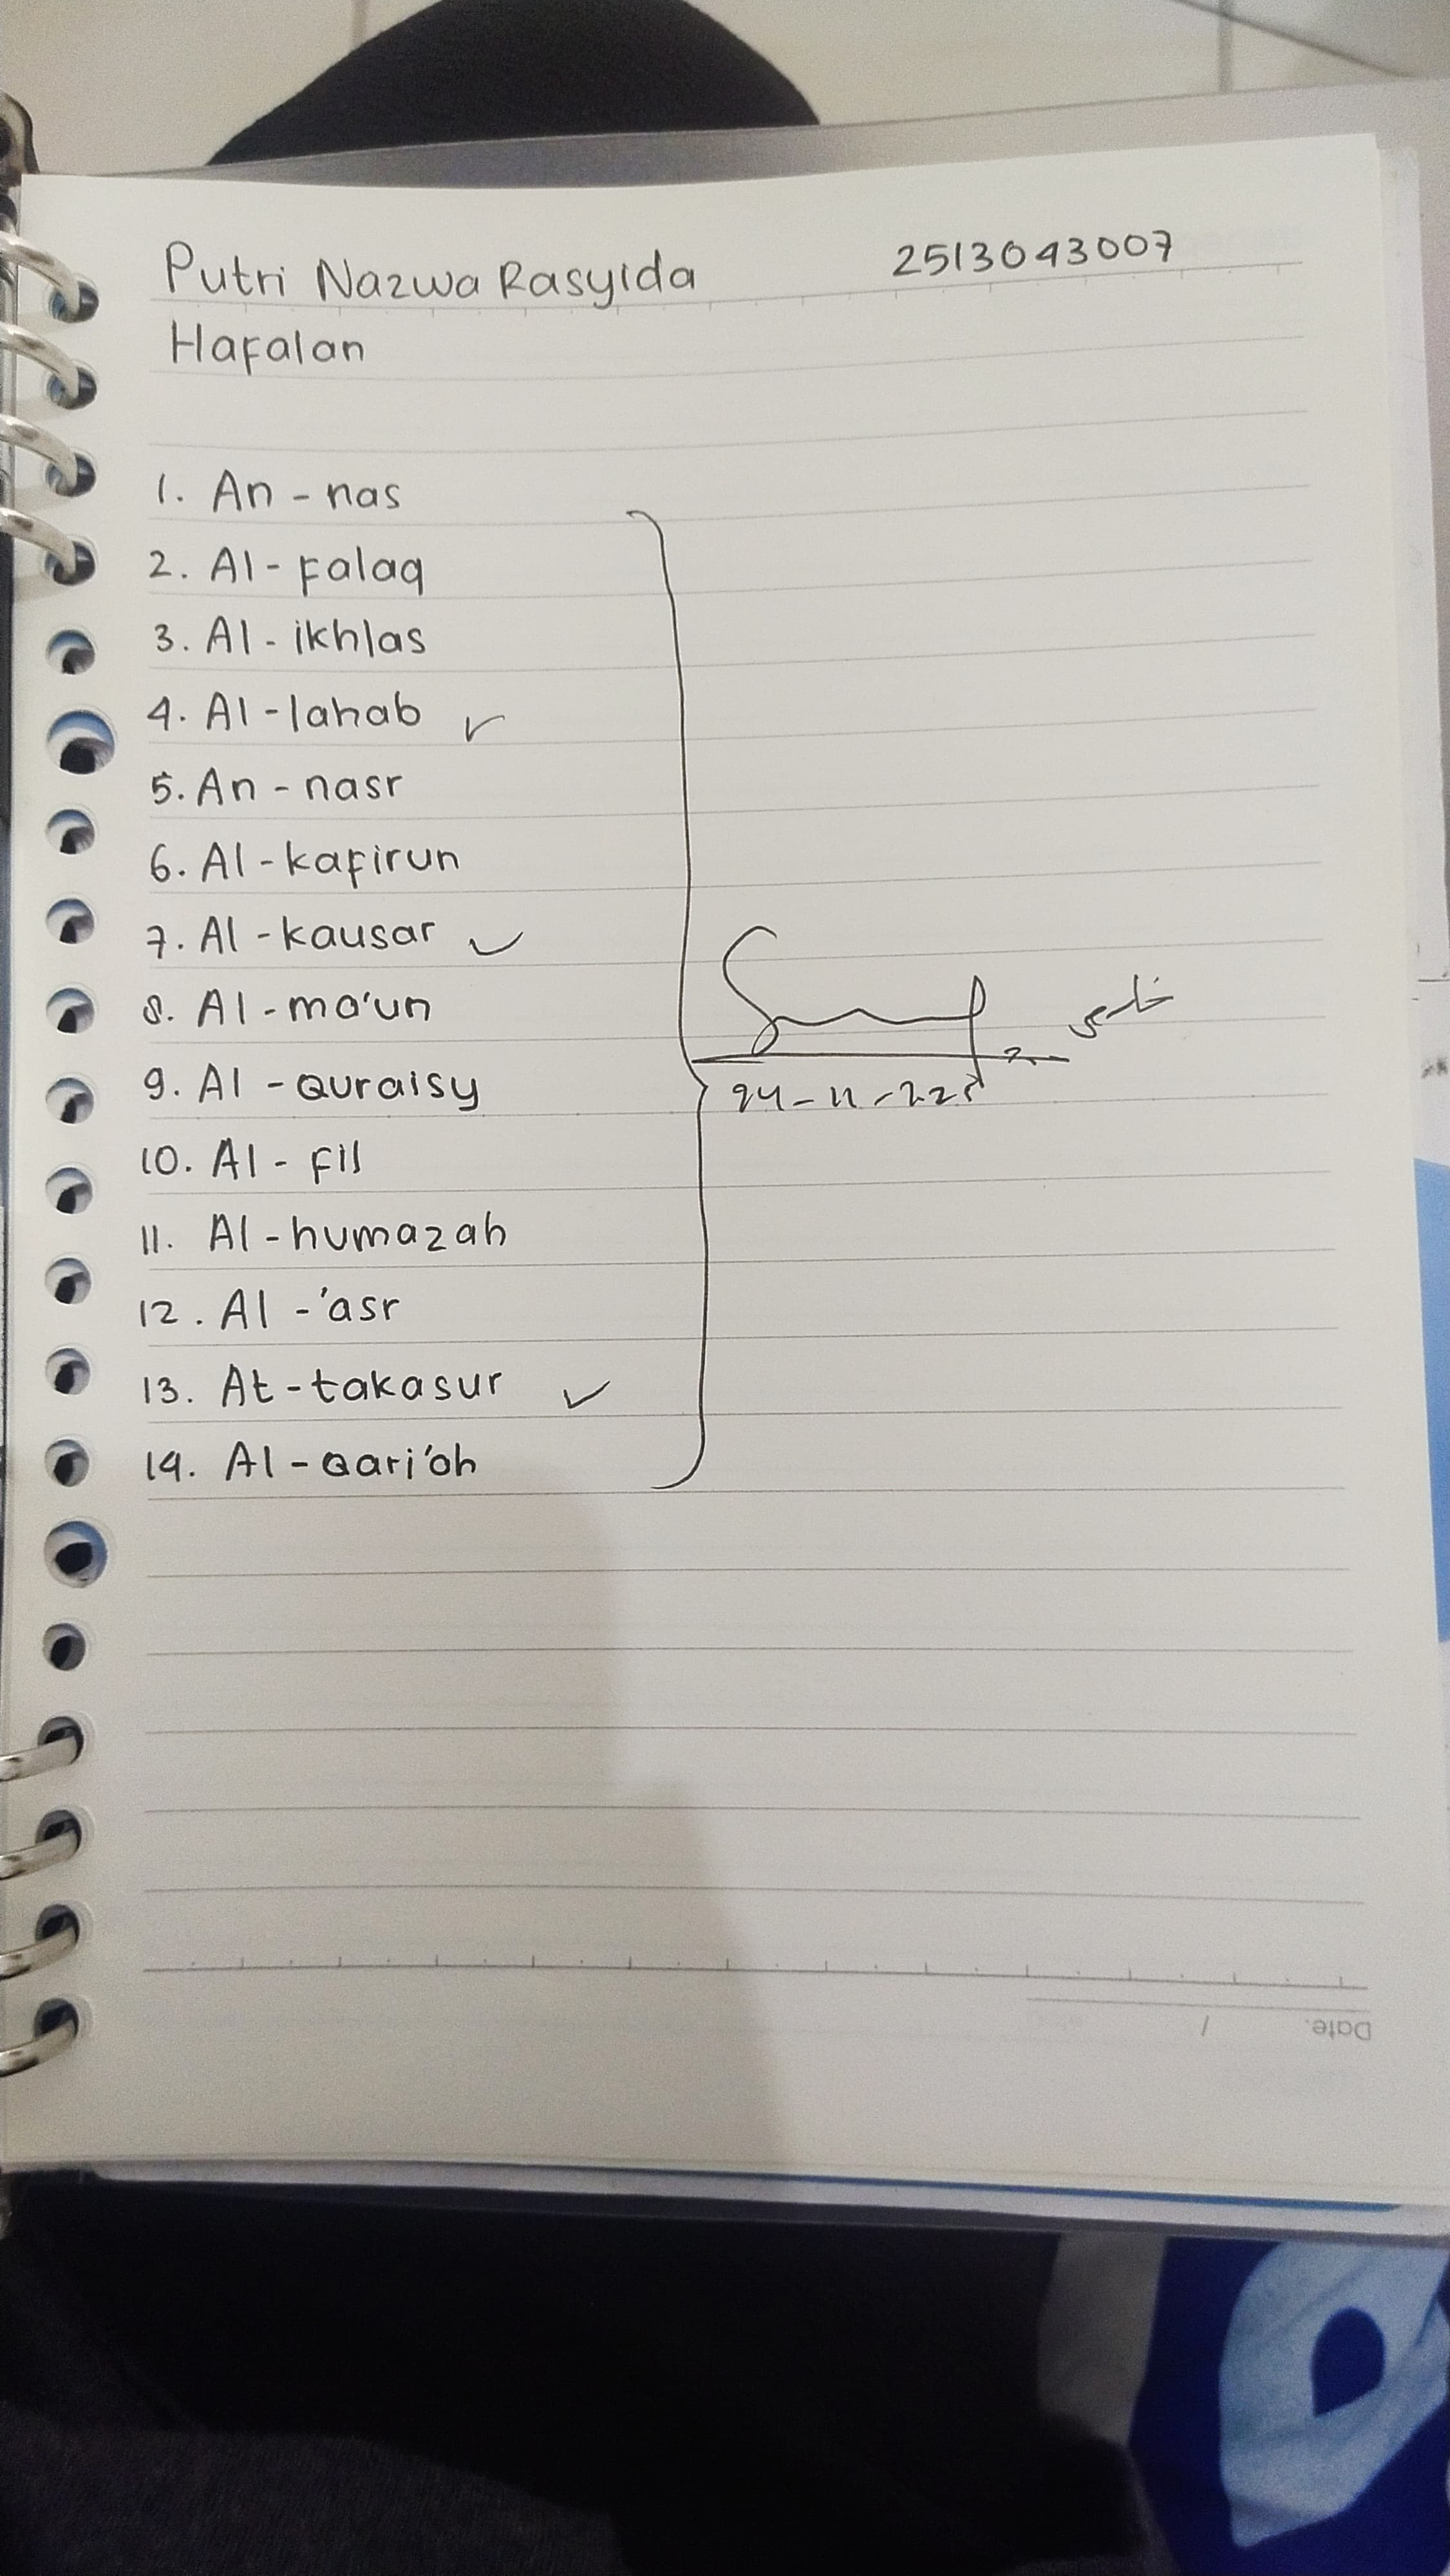 Putri Nazwa Rasyida 2513043007
Hafalan
1. An - nas
2. Al - falaq
3. Al - ikhlas
4. Al - lahab ✓
5. An - nasr
6. Al - kafirun
7. Al - kausar ✓
8. Al - ma'un
9. Al - Quraisy
10. Al - fil
11. Al - humazah
12. Al - 'asr
13. At - takasur ✓
14. Al - Qari'ah
Date. /